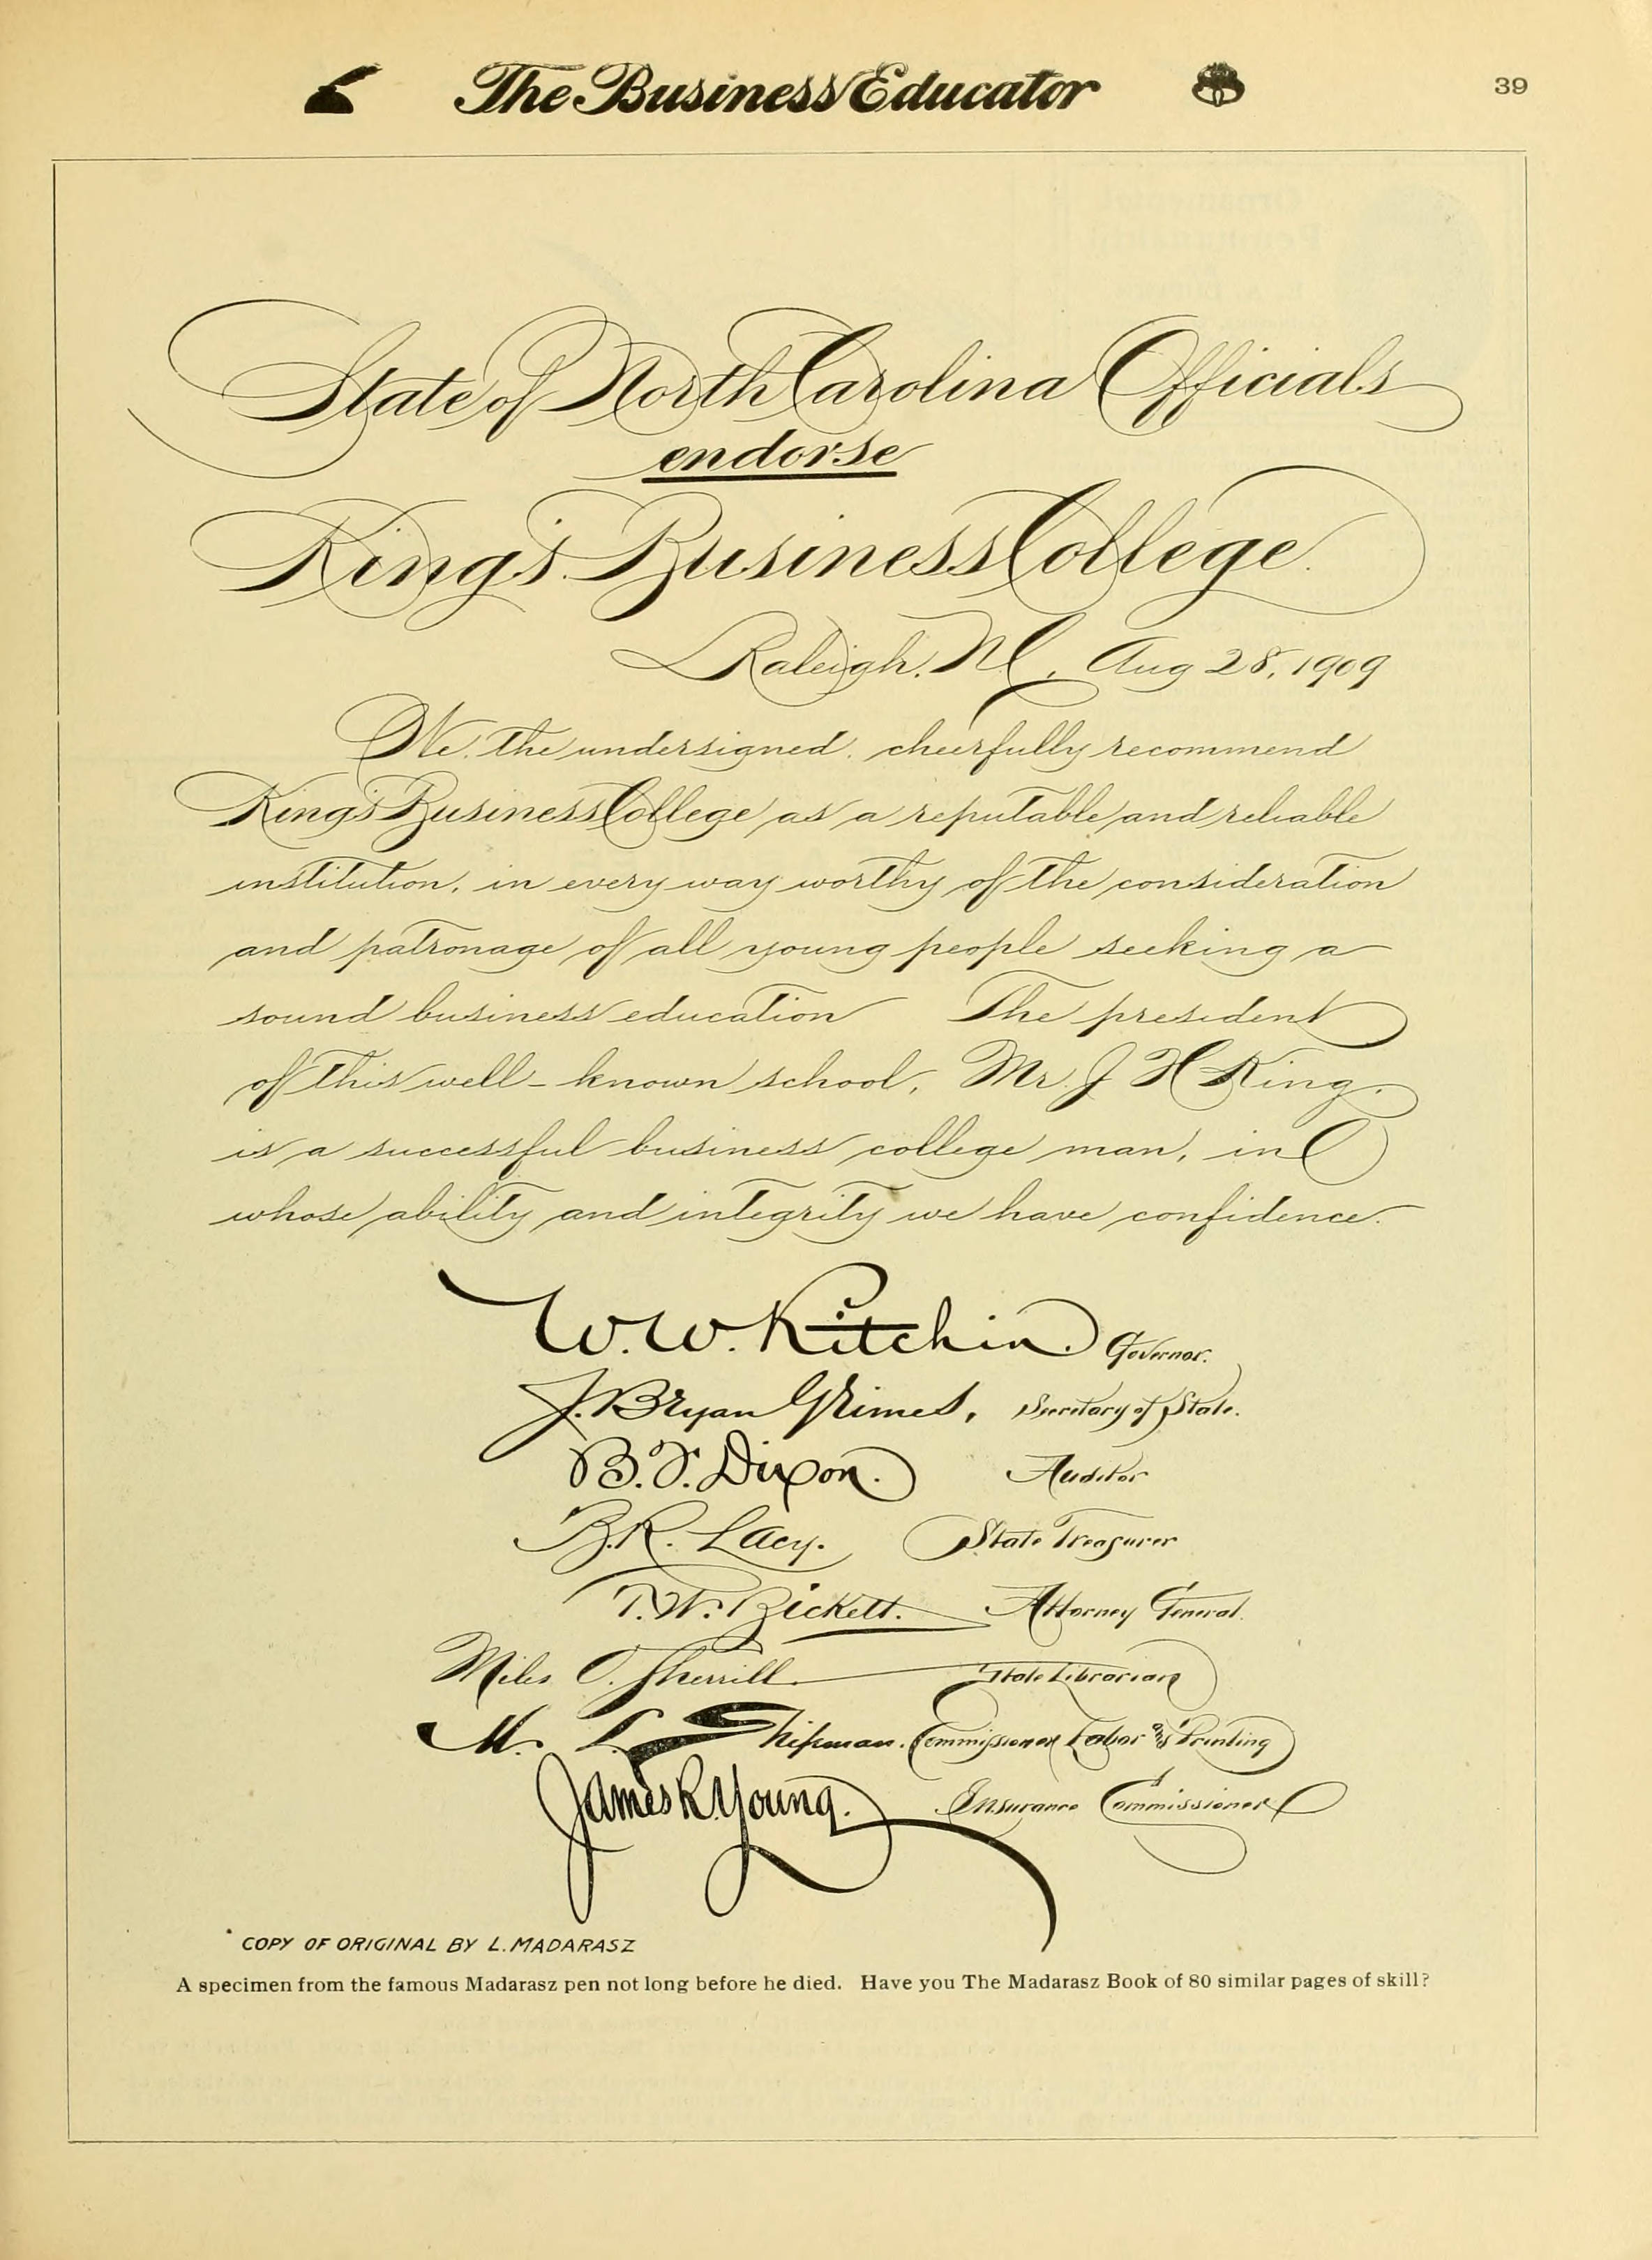 The Business Educator
39
State of North Carolina Officials
endorse
King's Business College.
Raleigh, N.C., Aug 28, 1909
We, the undersigned, cheerfully recommend
King's Business College as a reputable and reliable
institution, in every way worthy of the consideration
and patronage of all young people seeking a
sound business education The president
of this well-known school, Mr. J H King,
is a successful business college man, in
whose ability and integrity we have confidence.
W. W. Kitchin. Governor.
J. Bryan Grimes, Secretary of State.
B. F. Dixon. Auditor
B. R. Lacy. State Treasurer
T. W. Bickett. Attorney General.
Miles O. Sherrill State Librarian
M. L. Shipman. Commissioner Labor and Printing
James R. Young. Insurance Commissioner
COPY OF ORIGINAL BY L. MADARASZ
A specimen from the famous Madarasz pen not long before he died. Have you The Madarasz Book of 80 similar pages of skill?